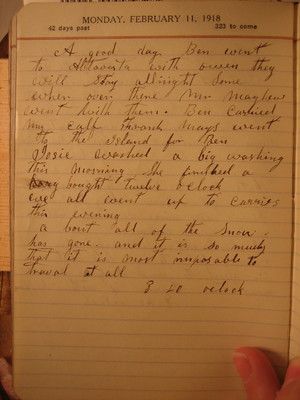 MONDAY, FEBRUARY 11, 1918
42 days past 323 to come
A good day. Ben went
to with owen they
will stay allnight some
when over there Mr Mayhew
went with them. Ben carried
my calf Mays went
to the Island for Ben
Josie washed a big washing
this morning She finished a
bought twelve o'clock
we all went up to Carries
this evening
a bout all of the Snow
has gone. and it is so muddy
that it is most imposable to
traval at all
8 40 oclock